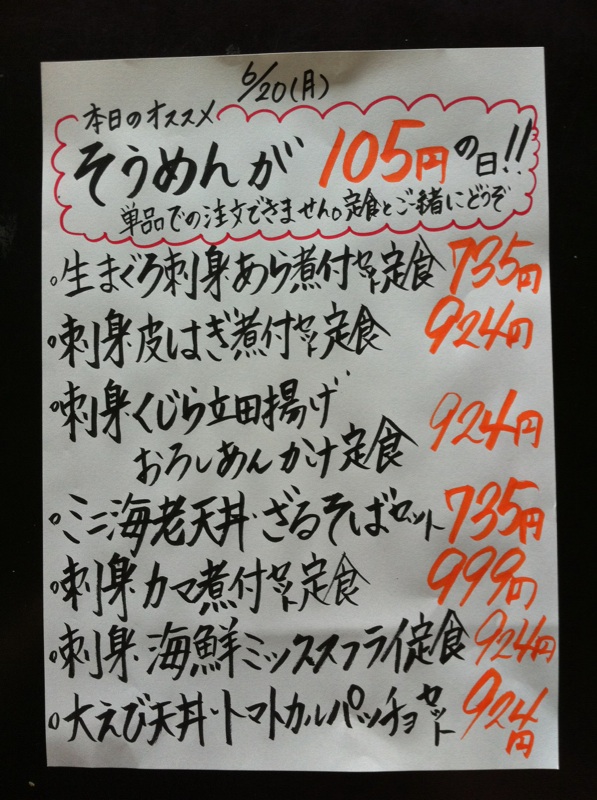 6/20(月)
本日のオススメ
そうめんが 105円の日!!
単品での注文できません。定食とご一緒にどうぞ
。生まぐろ刺身・あら煮付セット定食 735円
。刺身・皮はぎ煮付セット定食 924円
。刺身・くじら立田揚げ
おろしあんかけ定食 924円
。ミニ海老天丼・ざるそばセット 735円
。刺身・カマ煮付セット定食 999円
。刺身・海鮮ミックスフライ定食 924円
。大えび天丼・トマトカルパッチョセット 924円